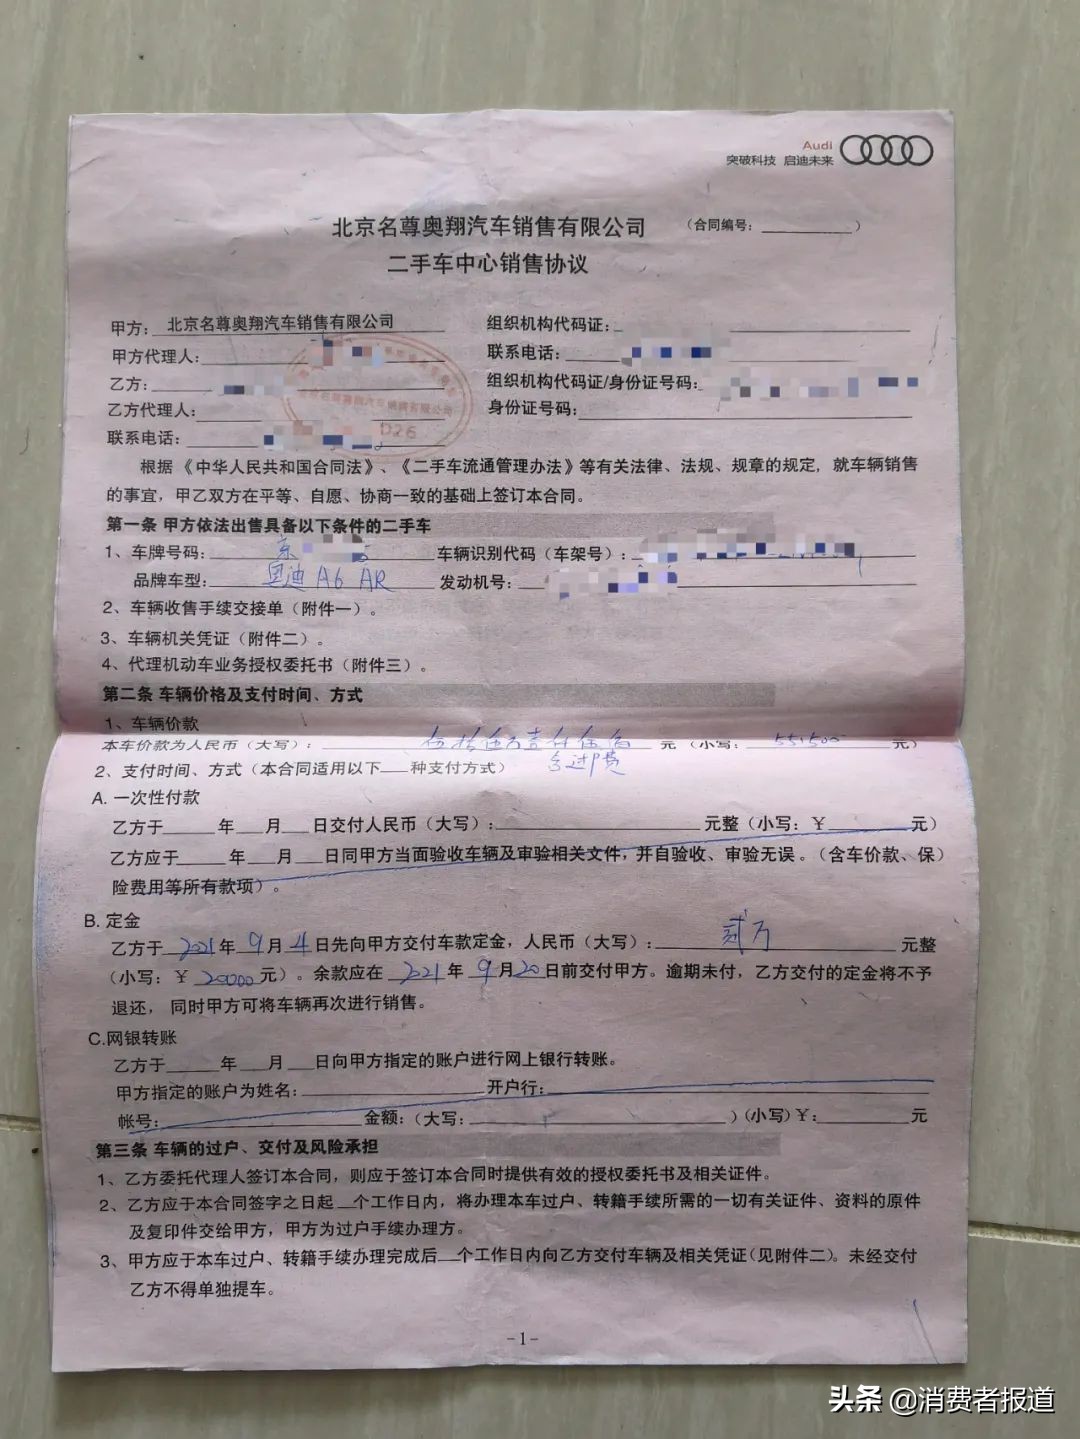 Audi
突破科技 启迪未来
北京名尊奥翔汽车销售有限公司 (合同编号: )
二手车中心销售协议
甲方: 北京名尊奥翔汽车销售有限公司 组织机构代码证:
甲方代理人: 联系电话:
乙方: 组织机构代码证/身份证号码:
乙方代理人: 身份证号码:
联系电话:
北京名尊奥翔汽车销售有限公司
026
根据《中华人民共和国合同法》、《二手车流通管理办法》等有关法律、法规、规章的规定,就车辆销售
的事宜,甲乙双方在平等、自愿、协商一致的基础上签订本合同。
第一条 甲方依法出售具备以下条件的二手车
1、车牌号码: 京 车辆识别代码(车架号):
品牌车型: 奥迪 A6 AR 发动机号:
2、车辆收售手续交接单(附件一)。
3、车辆机关凭证(附件二)。
4、代理机动车业务授权委托书(附件三)。
第二条 车辆价格及支付时间、方式
1、车辆价款
本车价款为人民币(大写): 伍拾伍万壹仟伍佰 元 (小写: 551500 元)
2、支付时间、方式(本合同适用以下___种支付方式) 含过户费
A. 一次性付款
乙方于_____年___月___日交付人民币(大写):__________元整(小写:¥______元)
乙方应于_____年___月___日同甲方当面验收车辆及审验相关文件,并自验收、审验无误。(含车价款、保)
险费用等所有款项)。
B. 定金
乙方于 2021 年 9 月 4 日先向甲方交付车款定金,人民币(大写): 贰万 元整
(小写:¥ 20000 元)。余款应在 2021 年 9 月 20 日前交付甲方。逾期未付,乙方交付的定金将不予
退还,同时甲方可将车辆再次进行销售。
C.网银转账
乙方于_____年___月___日向甲方指定的账户进行网上银行转账。
甲方指定的账户为姓名:__________开户行:__________
帐号:__________金额:(大写:__________)(小写)¥:______元
第三条 车辆的过户、交付及风险承担
1、乙方委托代理人签订本合同,则应于签订本合同时提供有效的授权委托书及相关证件。
2、乙方应于本合同签字之日起__个工作日内,将办理本车过户、转籍手续所需的一切有关证件、资料的原件
及复印件交给甲方,甲方为过户手续办理方。
3、甲方应于本车过户、转籍手续办理完成后__个工作日内向乙方交付车辆及相关凭证(见附件二)。未经交付
乙方不得单独提车。
-1-
头条 @消费者报道